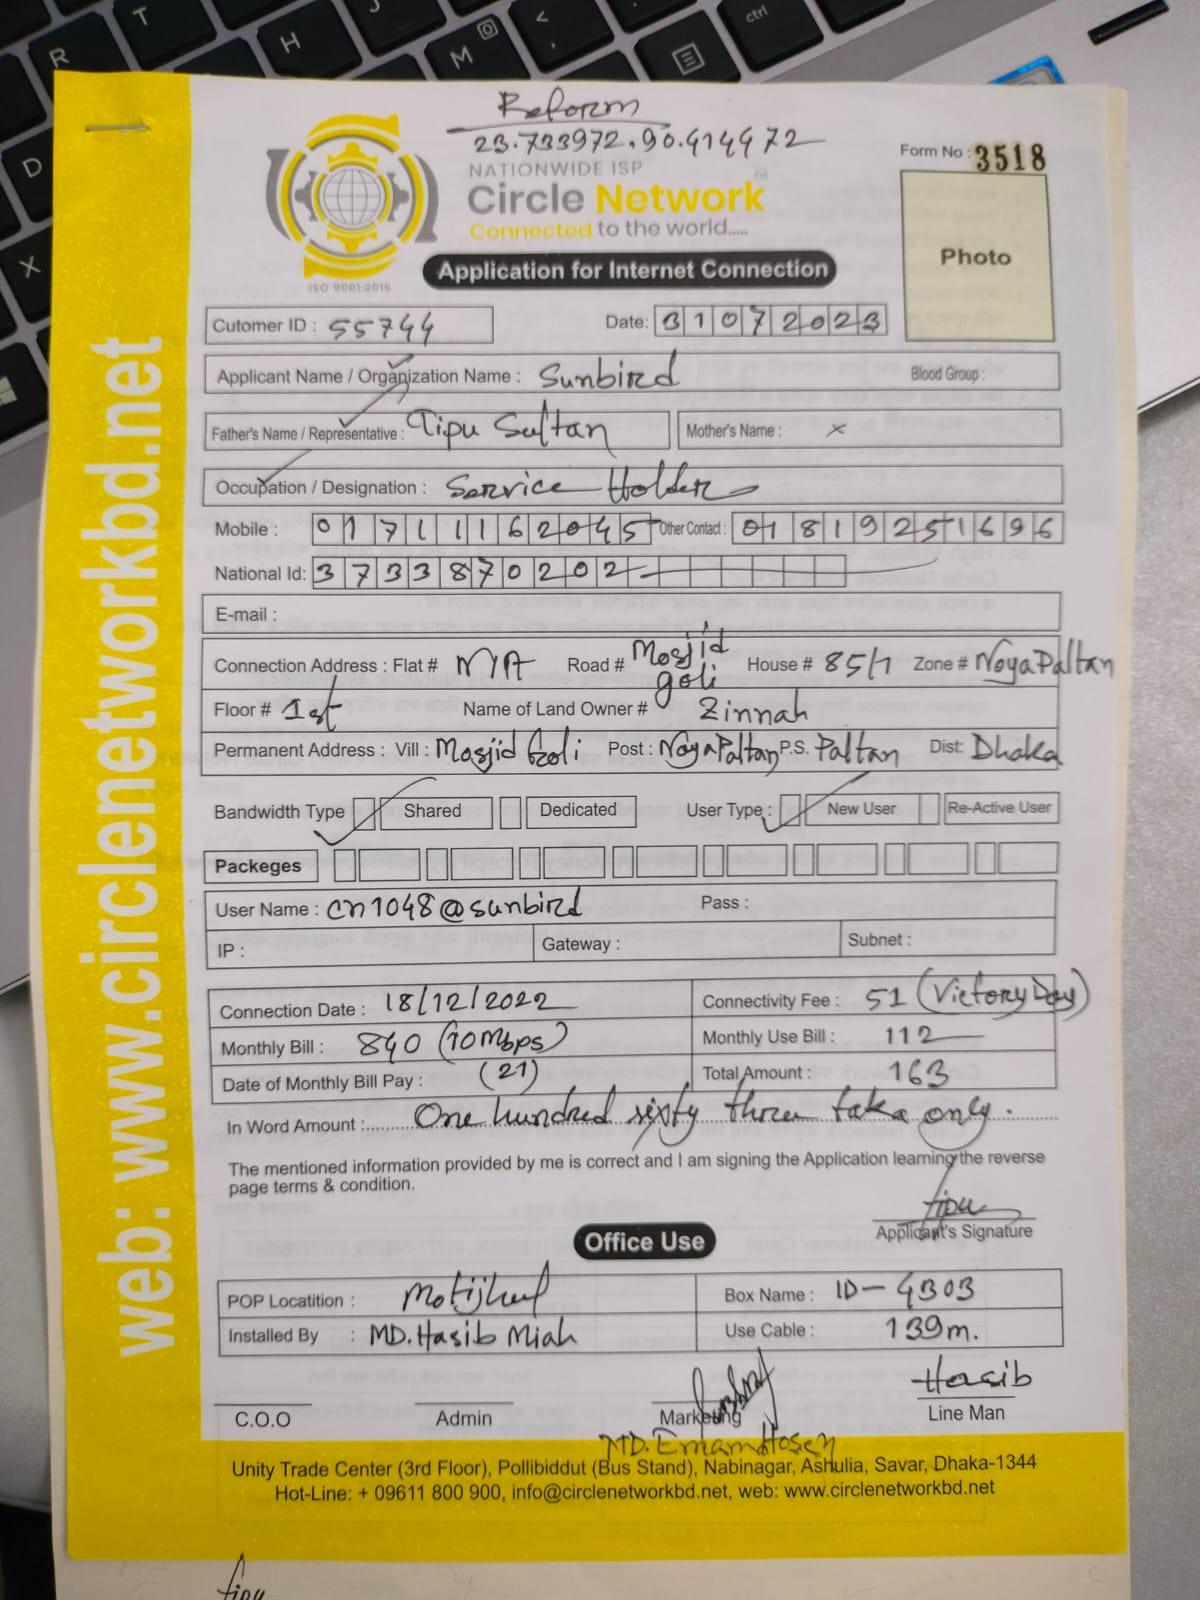 Reform
23.733972, 90.414472
NATIONWIDE ISP
Circle Network
Connected to the world.....
ISO 9001:2015
Form No : 3518
Photo
Application for Internet Connection
Cutomer ID : 55744 Date: 31072023
Applicant Name / Organization Name : Sunbird Blood Group :
Father's Name / Representative : Tipu Sultan Mother's Name : ×
Occupation / Designation : Service Holder
Mobile : 01711162045 Other Contact : 01819251696
National Id: 3733870202
E-mail :
Connection Address : Flat # N/A Road # Mosjid goli House # 85/1 Zone # NoyaPaltan
Floor # 1st Name of Land Owner # Zinnah
Permanent Address : Vill : Mosjid Goli Post : NoyaPaltan P.S. Paltan Dist: Dhaka
Bandwidth Type Shared Dedicated User Type : New User Re-Active User
Packeges
User Name : cn1048@sunbird Pass :
IP : Gateway : Subnet :
Connection Date : 18/12/2022 Connectivity Fee : 51 (Victory Day)
Monthly Bill : 840 (10Mbps) Monthly Use Bill : 112
Date of Monthly Bill Pay : (21) Total Amount : 163
In Word Amount :...... One hundred sixty three taka only.
The mentioned information provided by me is correct and I am signing the Application learning the reverse
page terms & condition.
tipu
Applicant's Signature
Office Use
POP Locatition : Motijheel Box Name : ID-4303
Installed By : MD. Hasib Miah Use Cable : 139m.
Hasib
C.O.O Admin Marketing Line Man
MD. Emam Hosen
Unity Trade Center (3rd Floor), Pollibiddut (Bus Stand), Nabinagar, Ashulia, Savar, Dhaka-1344
Hot-Line: + 09611 800 900, info@circlenetworkbd.net, web: www.circlenetworkbd.net
web: www.circlenetworkbd.net
tipu
R
T
J
H
M
<
,
ctrl
D
X